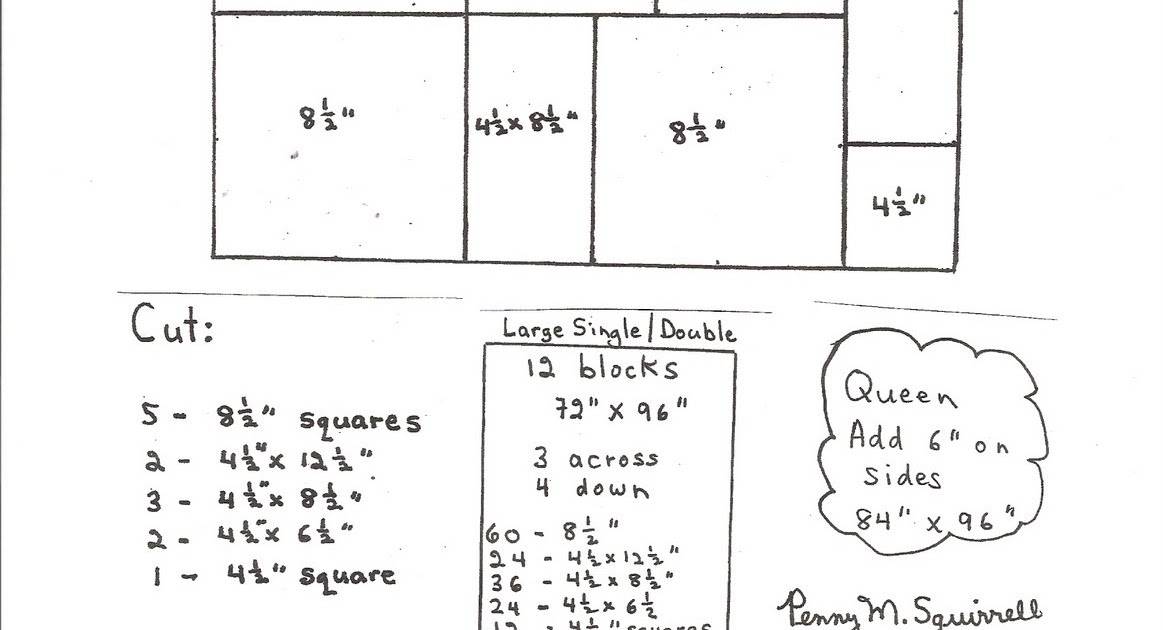 8½" 4½ x 8½" 8½"
4½"
Cut:
5 - 8½" squares
2 - 4½" x 12½"
3 - 4½" x 8½"
2 - 4½" x 6½"
1 - 4½" square
Large Single/Double
12 blocks
72" x 96"
3 across
4 down
60 - 8½"
24 - 4½ x 12½"
36 - 4½ x 8½"
24 - 4½ x 6½
12 - 4½" squares
Queen
Add 6" on
sides
84" x 96"
Penny M. Squirrell